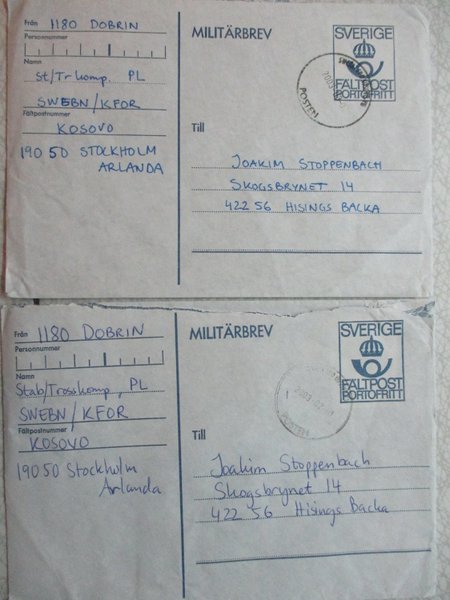 Från 1180 DOBRIN
Personnummer
Namn
St/Trkomp, PL
SWEBN/KFOR
Fältpostnummer
KOSOVO
190 50 STOCKHOLM
ARLANDA
MILITÄRBREV
SVERIGE
FÄLTPOST
PORTOFRITT
POSTEN
2003
Till
JOAKIM STOPPENBACH
SKOGSBRYNET 14
422 56 HISINGS BACKA
Från 1180 DOBRIN
Personnummer
Namn
Stab/Trosskomp, PL
SWEBN/KFOR
Fältpostnummer
KOSOVO
190 50 Stockholm
Arlanda
MILITÄRBREV
SVERIGE
FÄLTPOST
PORTOFRITT
2003
POSTEN
Till
Joakim Stoppenbach
Skogsbrynet 14
422 56 Hisings Backa